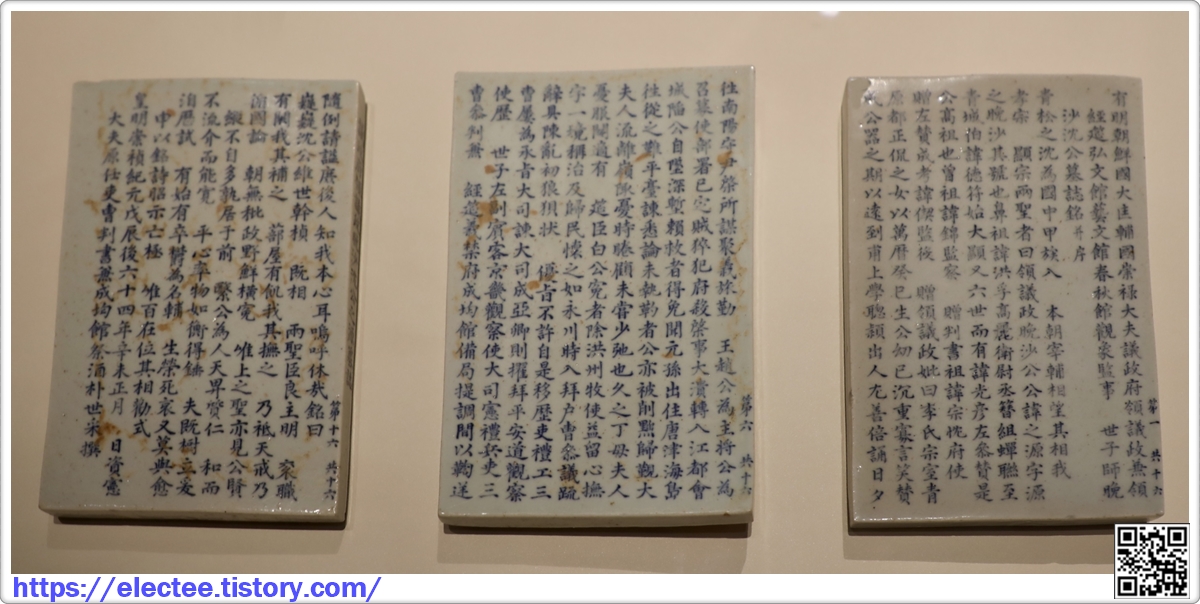 有明朝鮮國大匡輔國崇祿大夫議政府領議政兼領
經筵弘文館藝文館春秋館觀象監事 世子師晩
沙沈公墓誌銘并序
青松之沈為國甲甲族入 本朝宰輔相望其相我
孝宗 顯宗兩聖者曰領議政晩沙公公諱之源字源
之晩沙其號也鼻祖諱洪孚高麗衛尉丞簪組蟬聯至
青城伯諱德符始大顯又六世而有諱光彦左叅贊是
公高祖也曾祖諱錦監察 贈判書祖諱宗忱府使
贈左贊成考諱偰監役 贈領議政妣曰李氏宗室青
原都正侃之女以萬曆癸巳生公幼已沉重寡言笑贊
成公器之期以遠到甫上學聰頴出人尤善倍誦日夕
第一 共十六
往南陽守尹棨所謀聚義旅勤 王趙公為主將公為
召募使部署已定賊猝犯府殺棨事大潰轉入江都會
城陷公自墜深塹賴救者得免聞元孫出住唐津海島
往從之難平臺諫悉論未執靮者公亦被削黜歸觀大
夫人流離顚沛憂時睠顧未嘗少弛也久之丁母夫人
憂服闋適有 筵臣白公寃者除洪州牧使益留心撫
字一境稱治及歸民懷之如永川時入拜户曹叅議疏
辭具陳亂初狼狽狀 優旨不許自是移歷吏禮工三
曹屢為承旨大司諫大司成亞卿則擢拜平安道觀察
使歷 世子左副賓客京畿觀察使大司憲禮兵吏三
曹叅判兼 經筵義禁府成均館備局提調間以鞫逆
第六 共十六
隨例請諡庶後人知我本心耳嗚呼休哉銘曰
巍巍沈公維世幹楨 既相 兩聖臣良主明 衮職
有闕我其補之 蔀屋有飢我其撫之 乃祗天戒乃
國論 朝無秕政野鮮橫寃 唯上之聖亦見公賢
縱不自多孰居于前 繄公為人天畀贇仁 和而
不流介而能寛 平心率物如衡得錘 夫旣樹立爰
洎歷試 有始有卒蔚為名輔 生榮死哀又莫與愈
申以銘詩昭示亡極 唯百在位其相勸式
皇明崇禎紀元戊辰後六十四年辛未正月 日資憲
大夫原任吏曹判書兼成均館祭酒朴世采撰
第十六 共十六
https://electee.tistory.com/